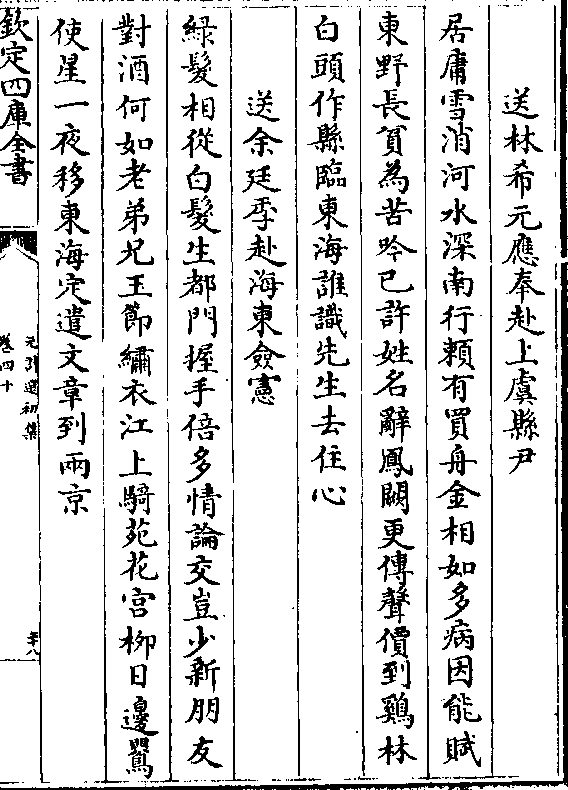 送林希元應奉赴上虞縣尹
居庸雪消河水深南行頼有買舟金相如多病因能賦
東野長貧為苦吟已許姓名辭鳳闕更傳聲價到鷄林
白頭作縣臨東海誰識先生去住心
送余廷季赴海東僉憲
緑髮相從白髮生都門握手倍多情論交豈少新朋友
對酒何如老弟兄玉節繡衣江上騎苑花宫栁日邊鸎
使星一夜移東海定遣文章到兩京
欽定四庫全書
元詩選初集
卷四十